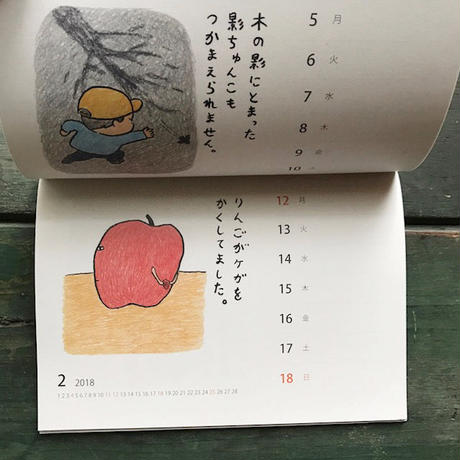 木の影にとまった
影ちゅんこも
つかまえられません。
5 月
6 火
7 水
8 木
9 金
10
りんごがケガを
かくしてました。
12 月
13 火
14 水
15 木
16 金
17 土
18 日
2 2018
1 2 3 4 5 6 7 8 9 10 11 12 13 14 15 16 17 18 19 20 21 22 23 24 25 26 27 28